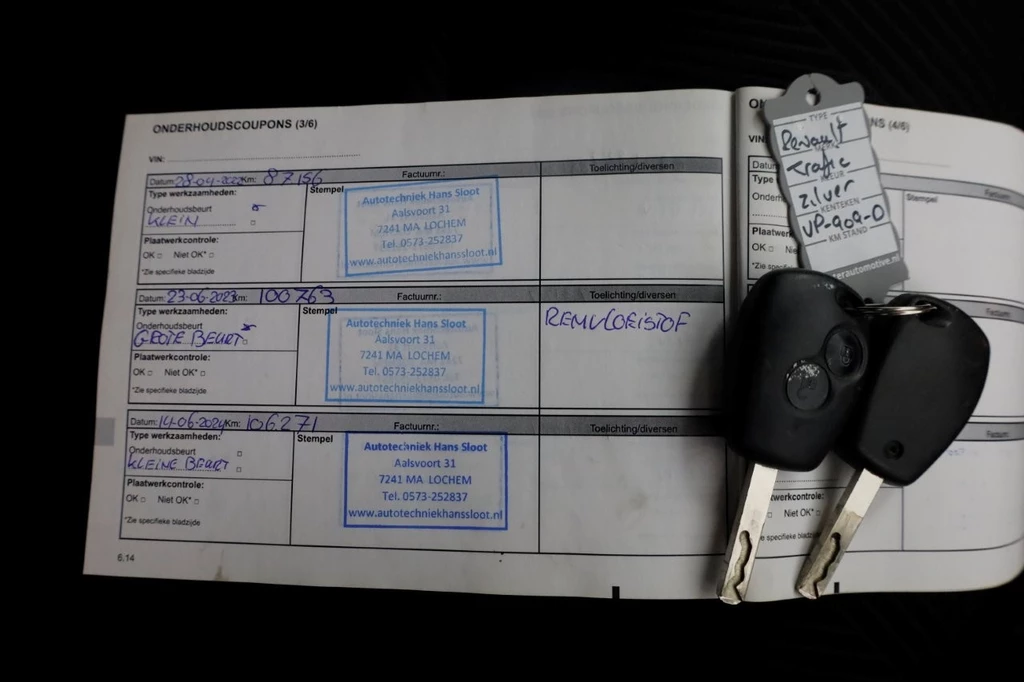 ONDERHOUDSCOUPONS (3/6)
VIN:
Datum: 28-04-2022 Km: 87156 Factuurnr.: Toelichting/diversen
Type werkzaamheden:
Stempel
Onderhoudsbeurt
KLEIN
Plaatwerkcontrole:
OK Niet OK*
*Zie specifieke bladzijde
Autotechniek Hans Sloot
Aalsvoort 31
7241 MA LOCHEM
Tel. 0573-252837
www.autotechniekhanssloot.nl
Datum: 23-06-2023 Km: 100763 Factuurnr.: Toelichting/diversen
Type werkzaamheden:
Stempel
Onderhoudsbeurt
GROTE BEURT
Plaatwerkcontrole:
OK Niet OK*
*Zie specifieke bladzijde
Autotechniek Hans Sloot
Aalsvoort 31
7241 MA LOCHEM
Tel. 0573-252837
www.autotechniekhanssloot.nl
REMVLOEISTOF
Datum: 14-06-2024 Km: 106271 Factuurnr.: Toelichting/diversen
Type werkzaamheden:
Stempel
Onderhoudsbeurt
KLEINE BEURT
Plaatwerkcontrole:
OK Niet OK*
*Zie specifieke bladzijde
Autotechniek Hans Sloot
Aalsvoort 31
7241 MA LOCHEM
Tel. 0573-252837
www.autotechniekhanssloot.nl
6.14
ON
NS (4/6)
VIN:
Datum
Type
Onderh
Plaatw
OK Ni
*Zie spe
Factuurnr
Stempel
TYPE
Renault
Trafic
KLEUR
zilver
KENTEKEN
VP-909-D
KM STAND
terautomotive.nl
Factuurn
Factuurn
twerkcontrole:
Niet OK*
e specifieke bladzijde